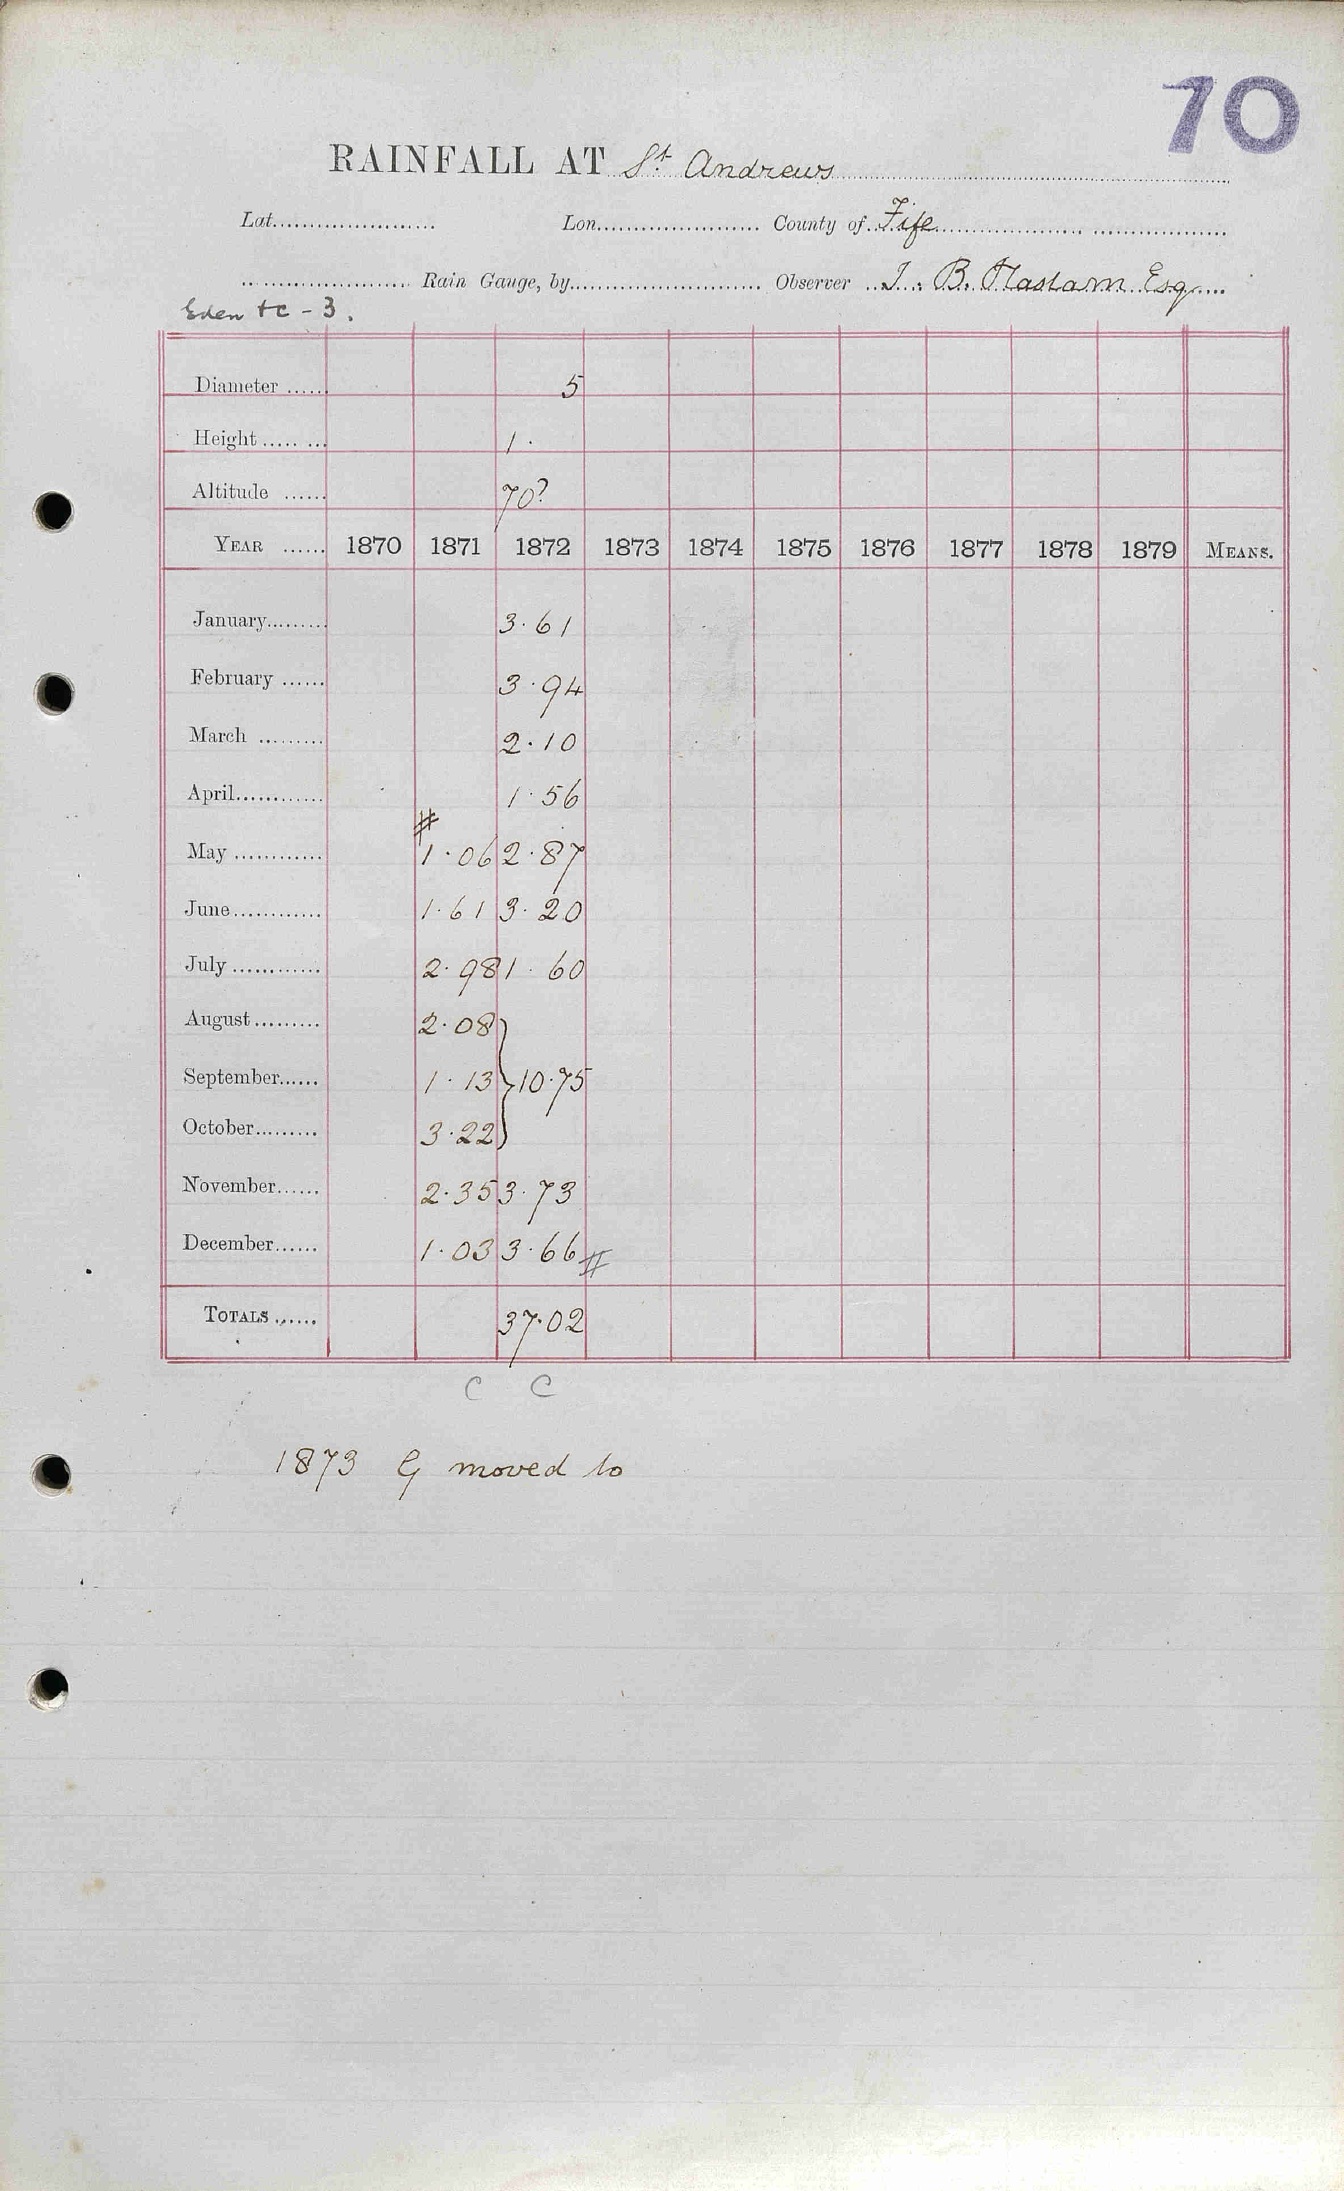 70
RAINFALL AT St. Andrews
Lat. Lon. County of Fife
Rain Gauge, by Observer J. B. Esq
Eden tc - 3.
Diameter 5
Height 1.
Altitude 70?
YEAR 1870 1871 1872 1873 1874 1875 1876 1877 1878 1879 MEANS.
January 3.61
February 3.94
March 2.10
April 1.56
#
May 1.06 2.87
June 1.61 3.20
July 2.98 1.60
August 2.08
September 1.13 } 10.75
October 3.22
November 2.35 3.73
December 1.03 3.66 #
TOTALS 37.02
C C
1873 G moved to